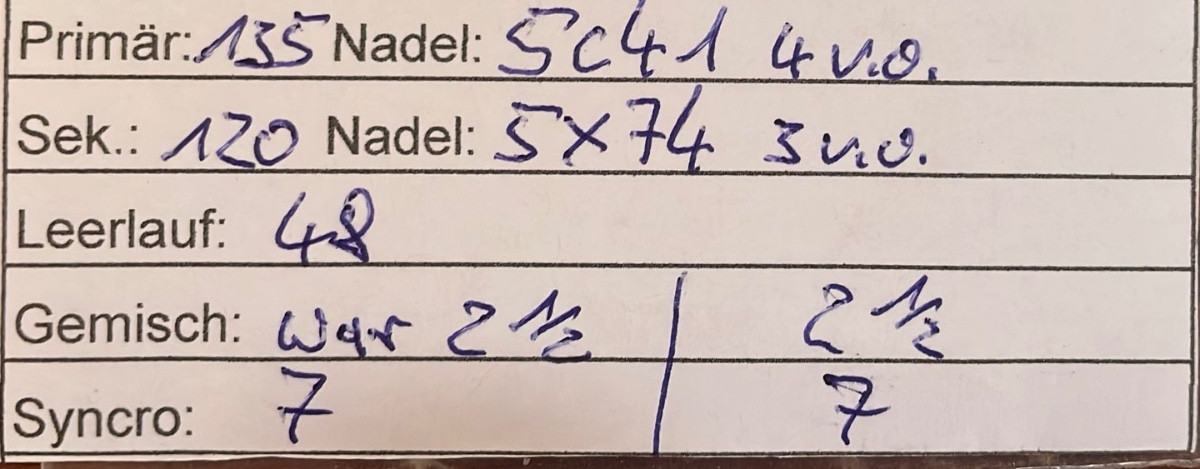 Primär: 135 Nadel: 5C41 4 v.o.
Sek.: 120 Nadel: 5X74 3 v.o.
Leerlauf: 48
Gemisch: war 2 1/2 | 2 1/2
Syncro: 7 | 7